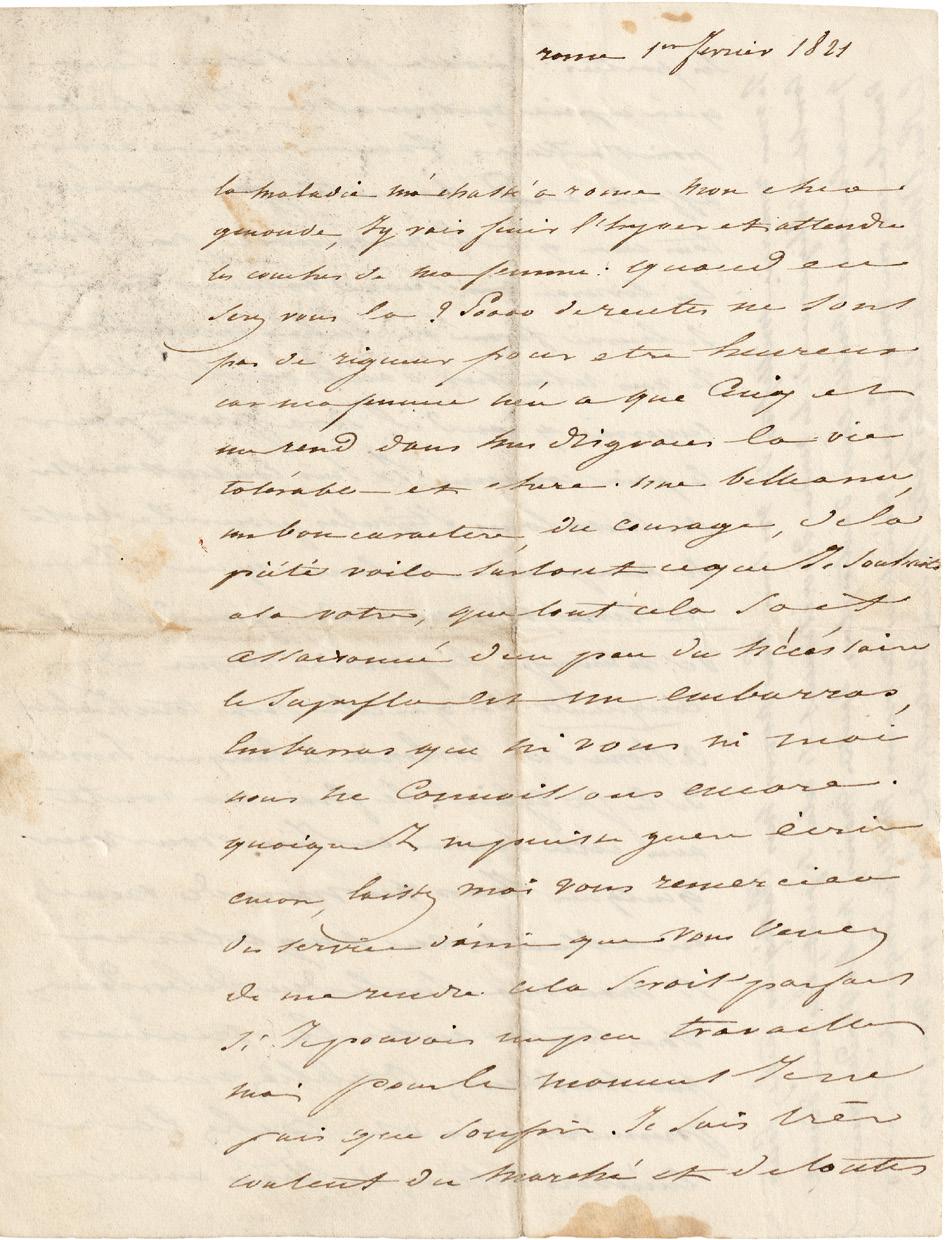 rome 1er fevrier 1821
la maladie m'a chassé a rome mon cher
genoude, J'y vais finir l'hyver et attendre
les couches de ma femme. quand en
serez vous la ? de rentes ne sont
pas de rigueur pour etre heureux
car ma femme n'en a que Cinq et
me rend dans mes disgraces la vie
tolérable et chere. une belle ame,
un bon caractere, du courage, de la
piété voila surtout ce que Je souhaite
a la votre, que tout cela soit
assaisonné d'un peu du nécéssaire
le superflu est un embarras,
Embarras que ni vous ni moi
nous ne Connoissons encore.
quoique Je ne puisse guere écrire
encor, laissez moi vous remercier
du service d'ami que vous venez
de me rendre. cela seroit parfait
si Je pouvois un peu travailler
mais pour le moment Je ne
puis que souffrir. Je suis trèr
content du marché et de toutes